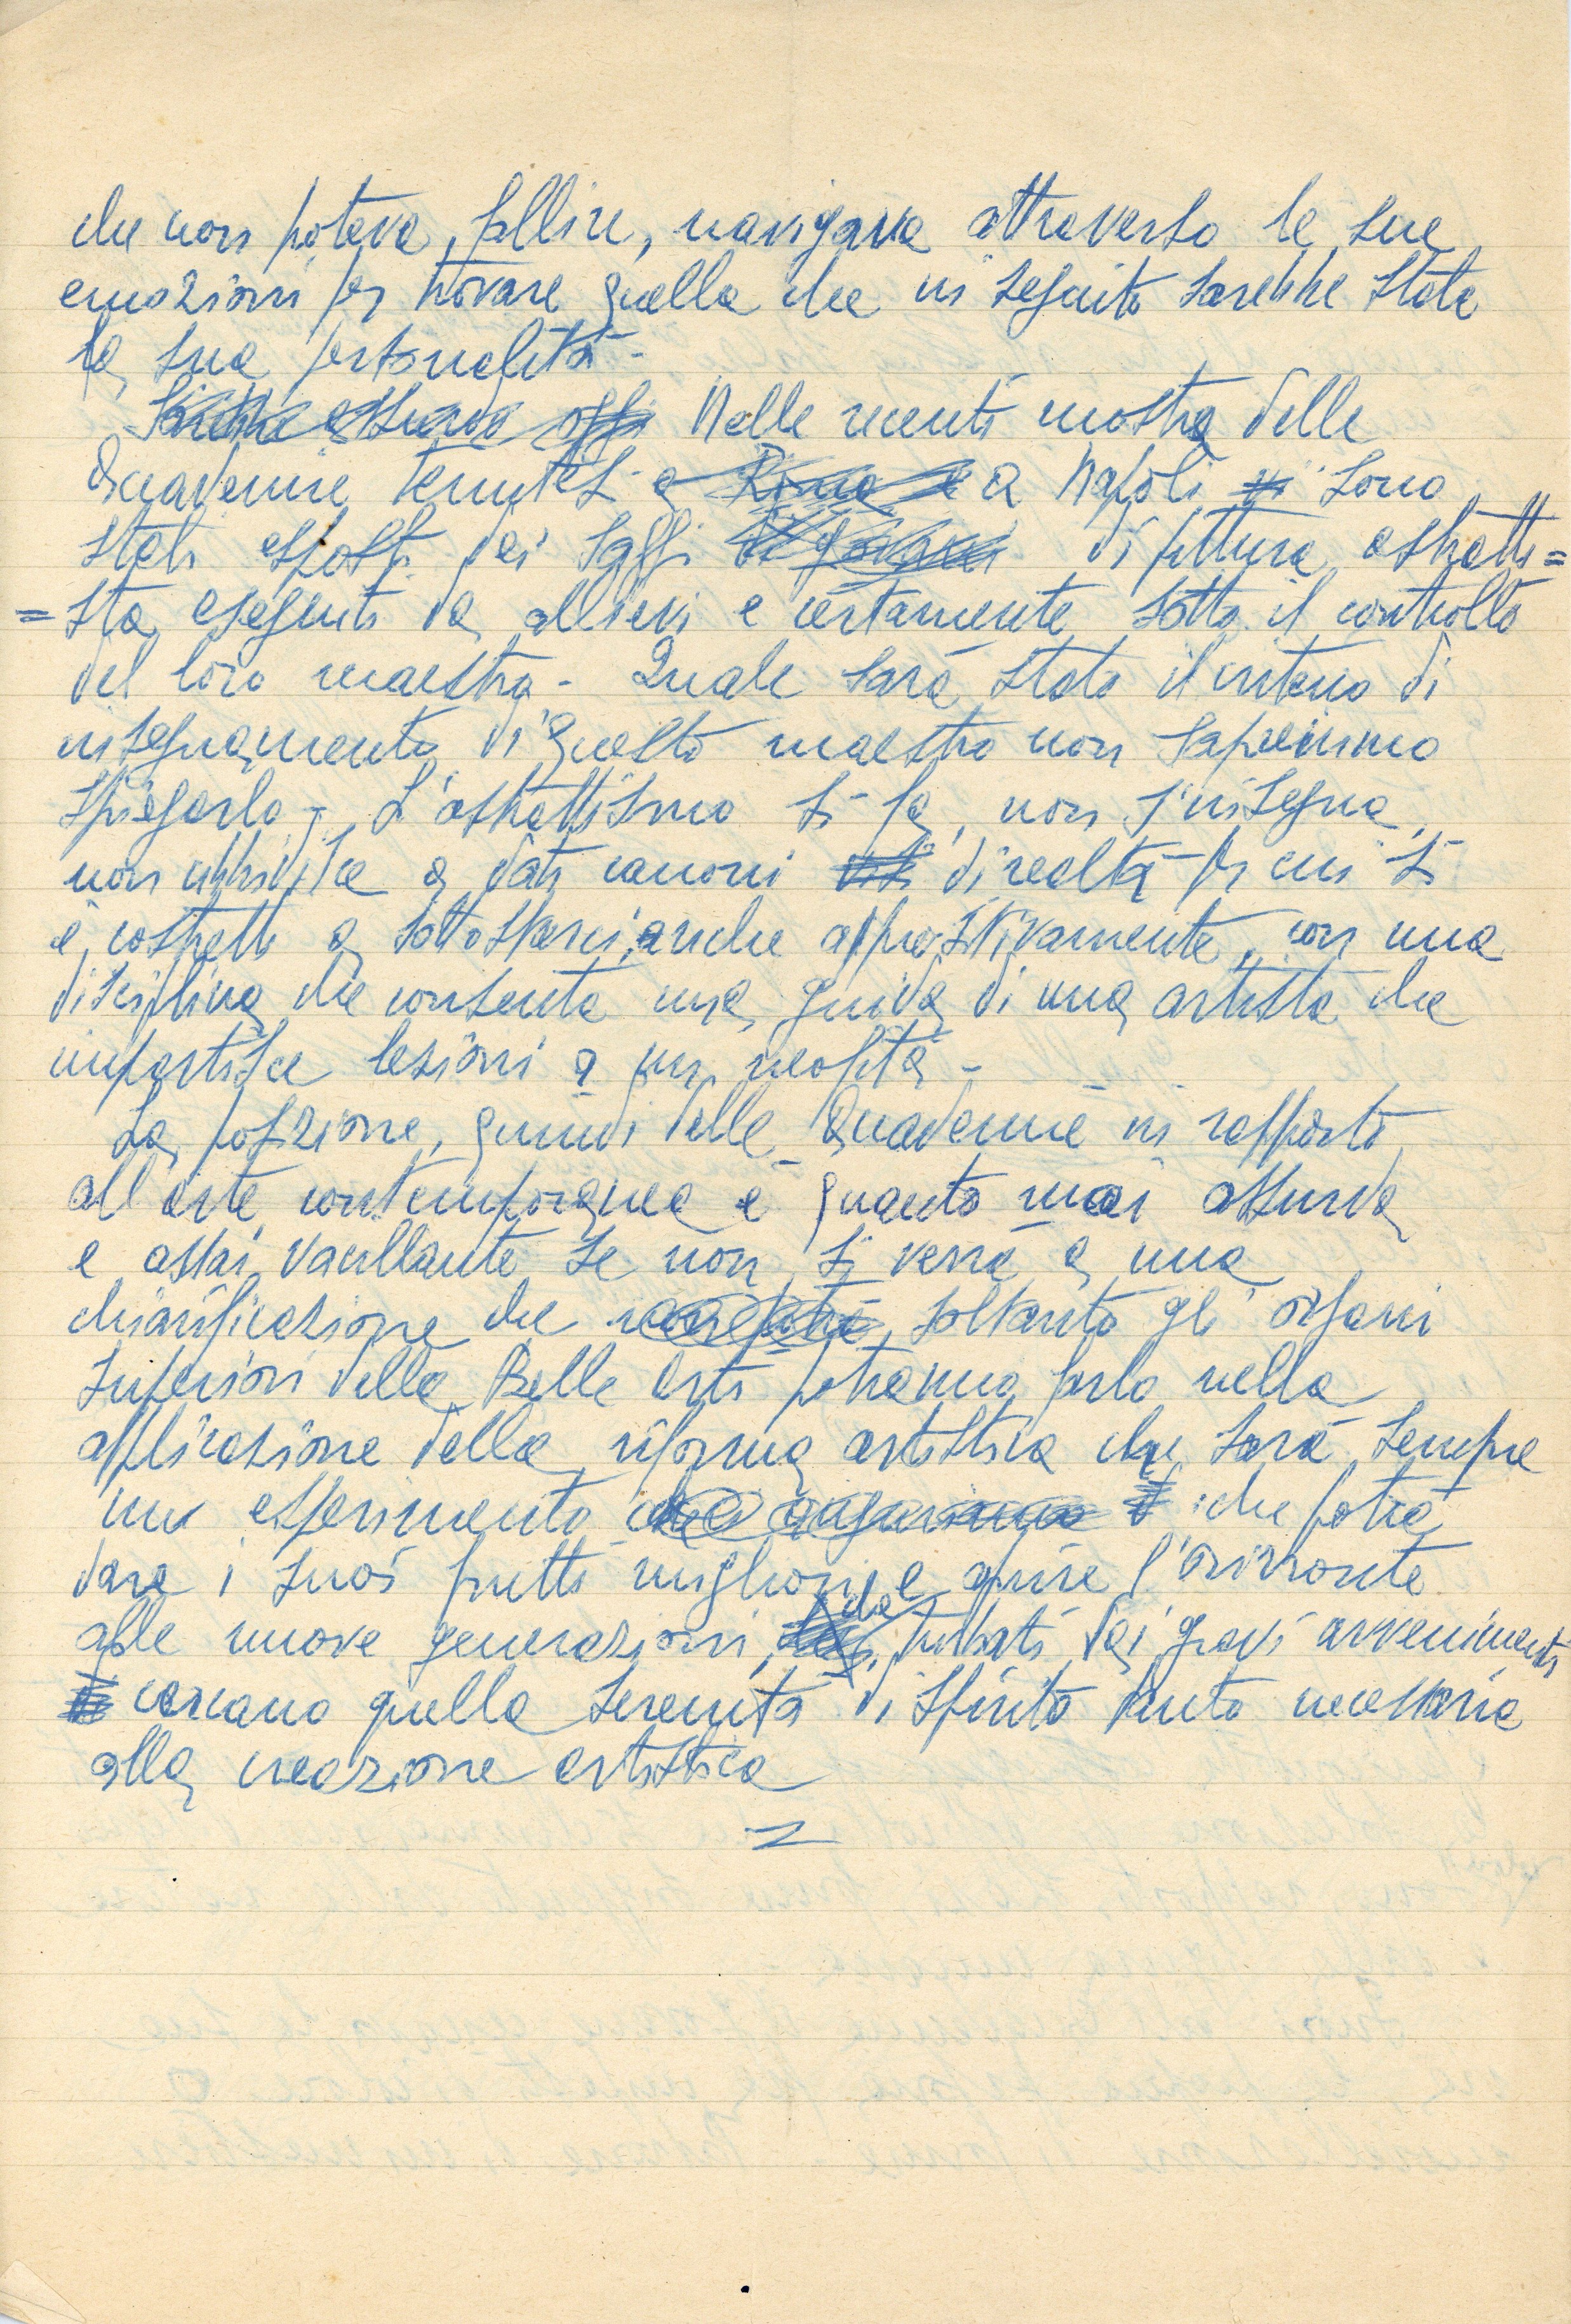 che non poteva fallire, navigava attraverso le sue
emozioni per trovare quella che in seguito sarebbe stata
la sua personalità -
Sarebbe assurdo oggi Nelle recenti mostra delle
Accademie tenutesi a Roma e a Napoli vi sono
stati esposti dei saggi di pittura astratti=
=sta, eseguiti da allievi e certamente sotto il controllo
del loro maestro - Quale sarà stato il criterio di
insegnamento di questo maestro non sapremmo
spiegarlo - L'astrattismo si fa, non s'insegna,
non ubbidisce a dati canoni di realtà per cui si
è costretti a sottostarci anche appositivamente, con una
disciplina che consenta una guida di una artista che
impartisce lezioni a un neofita -
La posizione, quindi delle Accademie in rapporto
all'arte contemporanea è quanto mai assurda
e assai vacillante se non si verrà a una
chiarificazione che non potrà soltanto gli organi
superiori delle Belle Arti potranno farlo nella
applicazione della riforma artistica che sarà sempre
un esperimento che potrà
dare i suoi frutti migliori e aprire l'orizzonte
alle nuove generazioni, che turbati dai gravi avvenimenti
cercano quella serenità di spirito tanto necessaria
alla creazione artistica